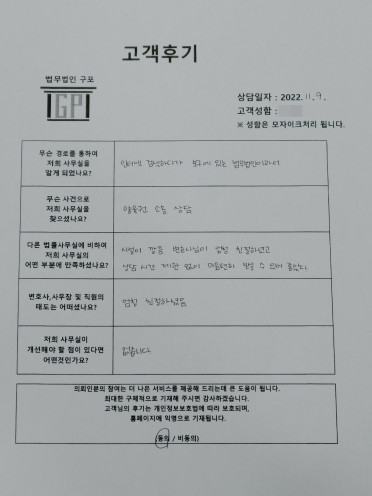 고객후기
법무법인 구포
IGPI
상담일자 : 2022. 11. 9.
고객성함 :
※ 성함은 모자이크처리 됩니다.
무슨 경로를 통하여
저희 사무실을
알게 되었나요?
인터넷 검색하다가 부구에 있는 법무법인이라서
무슨 사건으로
저희 사무실을
찾으셨나요?
양육권 소송 상담
다른 법률사무실에 비하여
저희 사무실의
어떤 부분에 만족하셨나요?
시설이 깔끔 변호사님이 엄청 친절하셨고
상담 시간 제한 없이 마음편히 받을 수 있어 좋았다.
변호사,사무장 및 직원의
태도는 어떠셨나요?
엄청 친절하셨음
저희 사무실이
개선해야 할 점이 있다면
어떤것인가요?
없습니다
의뢰인분의 참여는 더 나은 서비스를 제공해 드리는데 큰 도움이 됩니다.
최대한 구체적으로 기재해 주시면 감사하겠습니다.
고객님의 후기는 개인정보보호법에 따라 보호되며,
홈페이지에 익명으로 기재됩니다.
(동의 / 비동의)